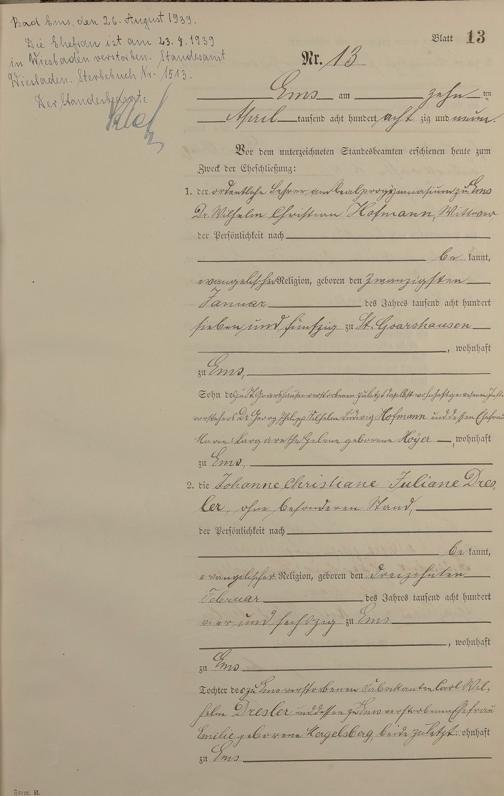 Bad Ems, den 26. August 1939.
Die Ehefrau ist am 23.4.1939
in Wiesbaden verstorben. Standesamt
Wiesbaden. Sterbebuch Nr. 1513.
Der Standesbeamte
Blatt 13
Nr. 13
Ems am zehn ten
April tausend acht hundert acht zig und neun
Vor dem unterzeichneten Standesbeamten erschienen heute zum
Zweck der Eheschließung:
1. der ordentliche Lehrer am Realprogymnasium zu Ems
Dr. Wilhelm Christian Hofmann, Wittwer
der Persönlichkeit nach
be kannt,
evangelischer Religion, geboren den zwanzigsten
Januar des Jahres tausend acht hundert
sieben und fünfzig zu St. Goarshausen
, wohnhaft
zu Ems,
Sohn des zu St. Goarshausen verstorbenen zuletzt daselbst wohnhaft gewesenen
Dr. Georg Philipp Wilhelm Ludwig Hofmann und dessen Ehefrau
Margarethe Helene geborene Hoyer, wohnhaft
zu Ems,
2. die Johanne Christiane Juliane Dres
ler, ohne besonderen Stand,
der Persönlichkeit nach
be kannt,
evangelischer Religion, geboren den dreizehnten
Februar des Jahres tausend acht hundert
vier und sechszig zu Ems
, wohnhaft
zu Ems
Tochter des zu Ems verstorbenen Fabrikanten Carl Wil-
helm Dresler und dessen zu Ems verstorbenen Ehefrau
Emilie geborene Hagelsberg, beide zuletzt wohnhaft
zu Ems
Form. B.